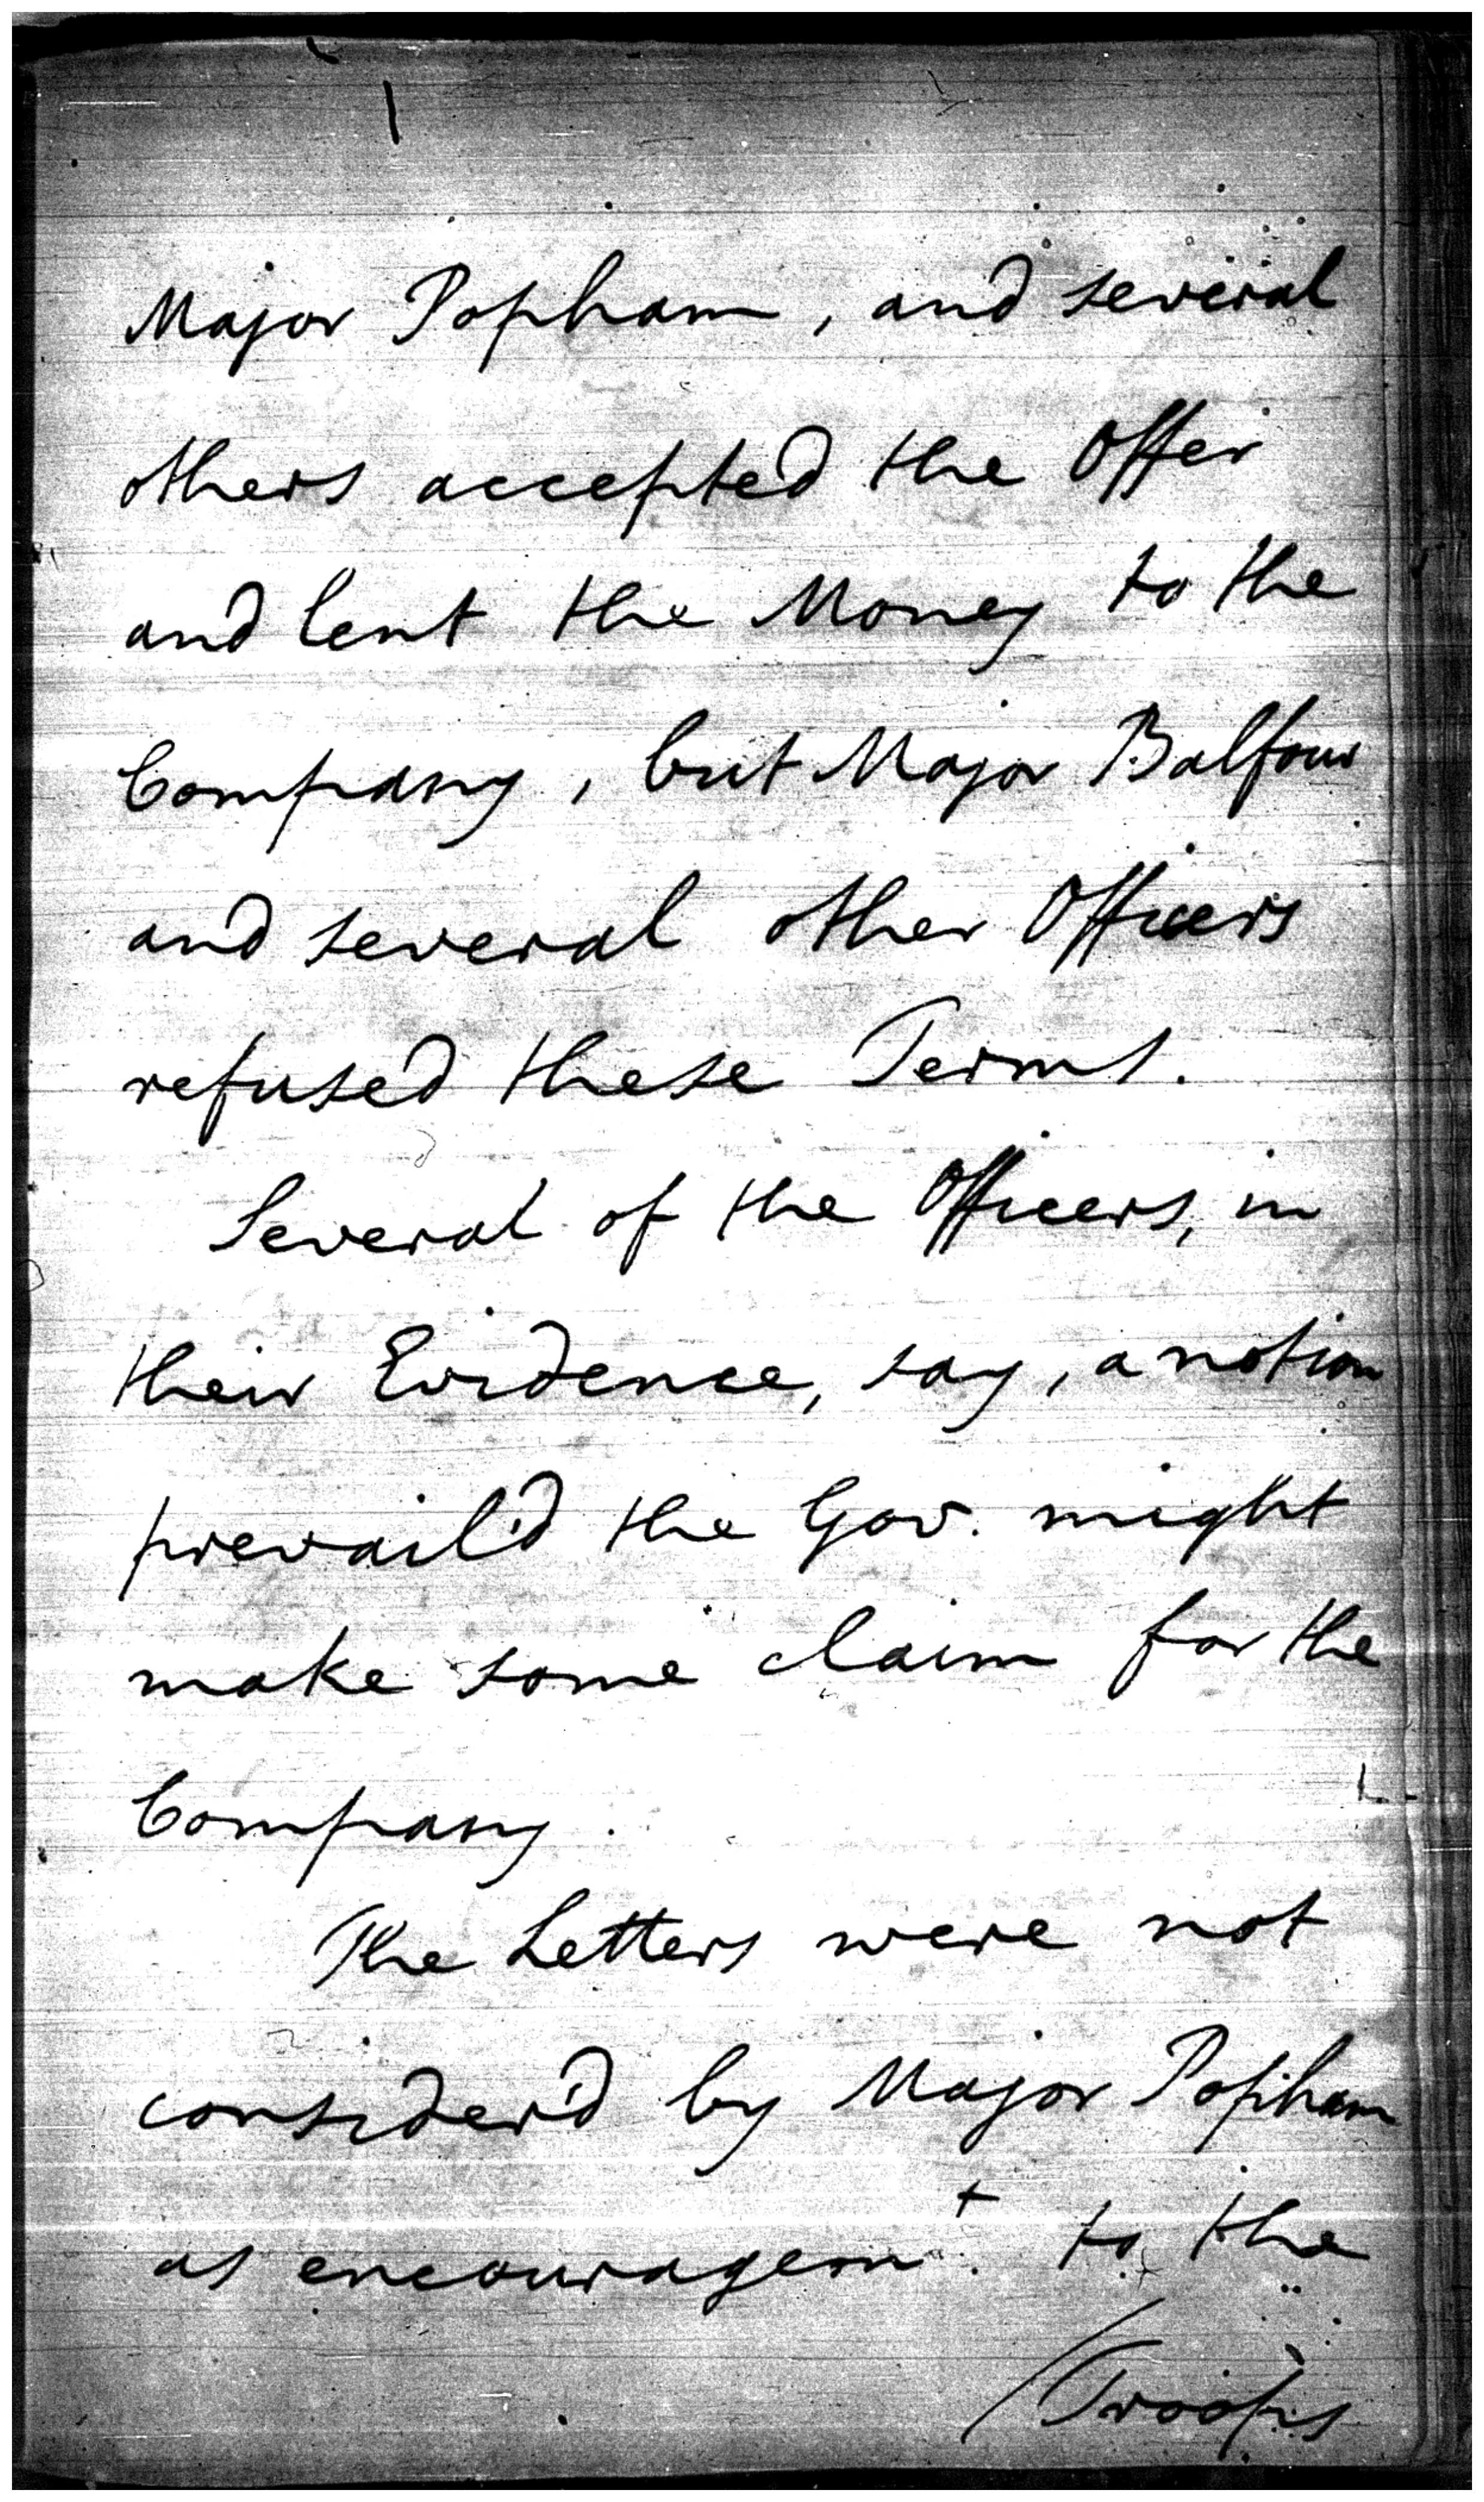 Major Popham, and several
others accepted the Offer
and lent the Money to the
Company, but Major Balfour
and several other Officers
refused these Terms.
Several of the Officers, in
their Evidence, say, a notion
prevail'd the Gov. might
make some claim for the
Company.
The Letters were not
consider'd by Major Popham
as encouragem^t. to the
/Troops